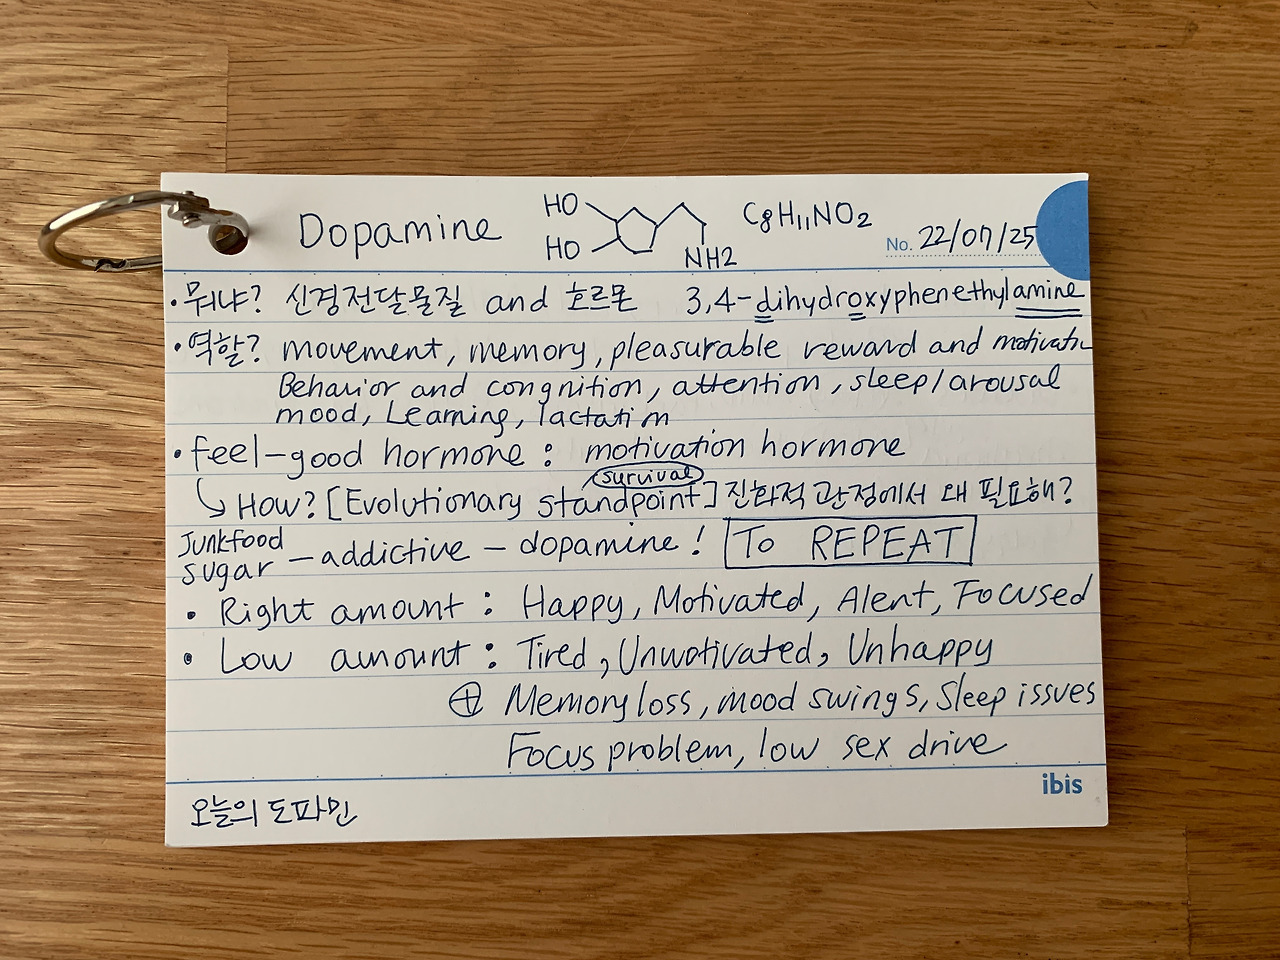 Dopamine HO HO NH2 C8H11NO2 No. 22/07/25
• 뭐냐? 신경전달물질 and 호르몬 3,4-dihydroxyphenethylamine
• 역할? movement, memory, pleasurable reward and motivatn
Behavior and congnition, attention, sleep/arousal
mood, Learning, lactation
• feel-good hormone : motivation hormone
survival
How? [Evolutionary standpoint] 진화적 관점에서 왜 필요해?
Junkfood
sugar – addictive – dopamine! To REPEAT
• Right amount : Happy, Motivated, Alert, Focused
• Low amount : Tired, Unmotivated, Unhappy
⊕ Memory loss, mood swings, Sleep issues
Focus problem, low sex drive
ibis
오늘의 도파민